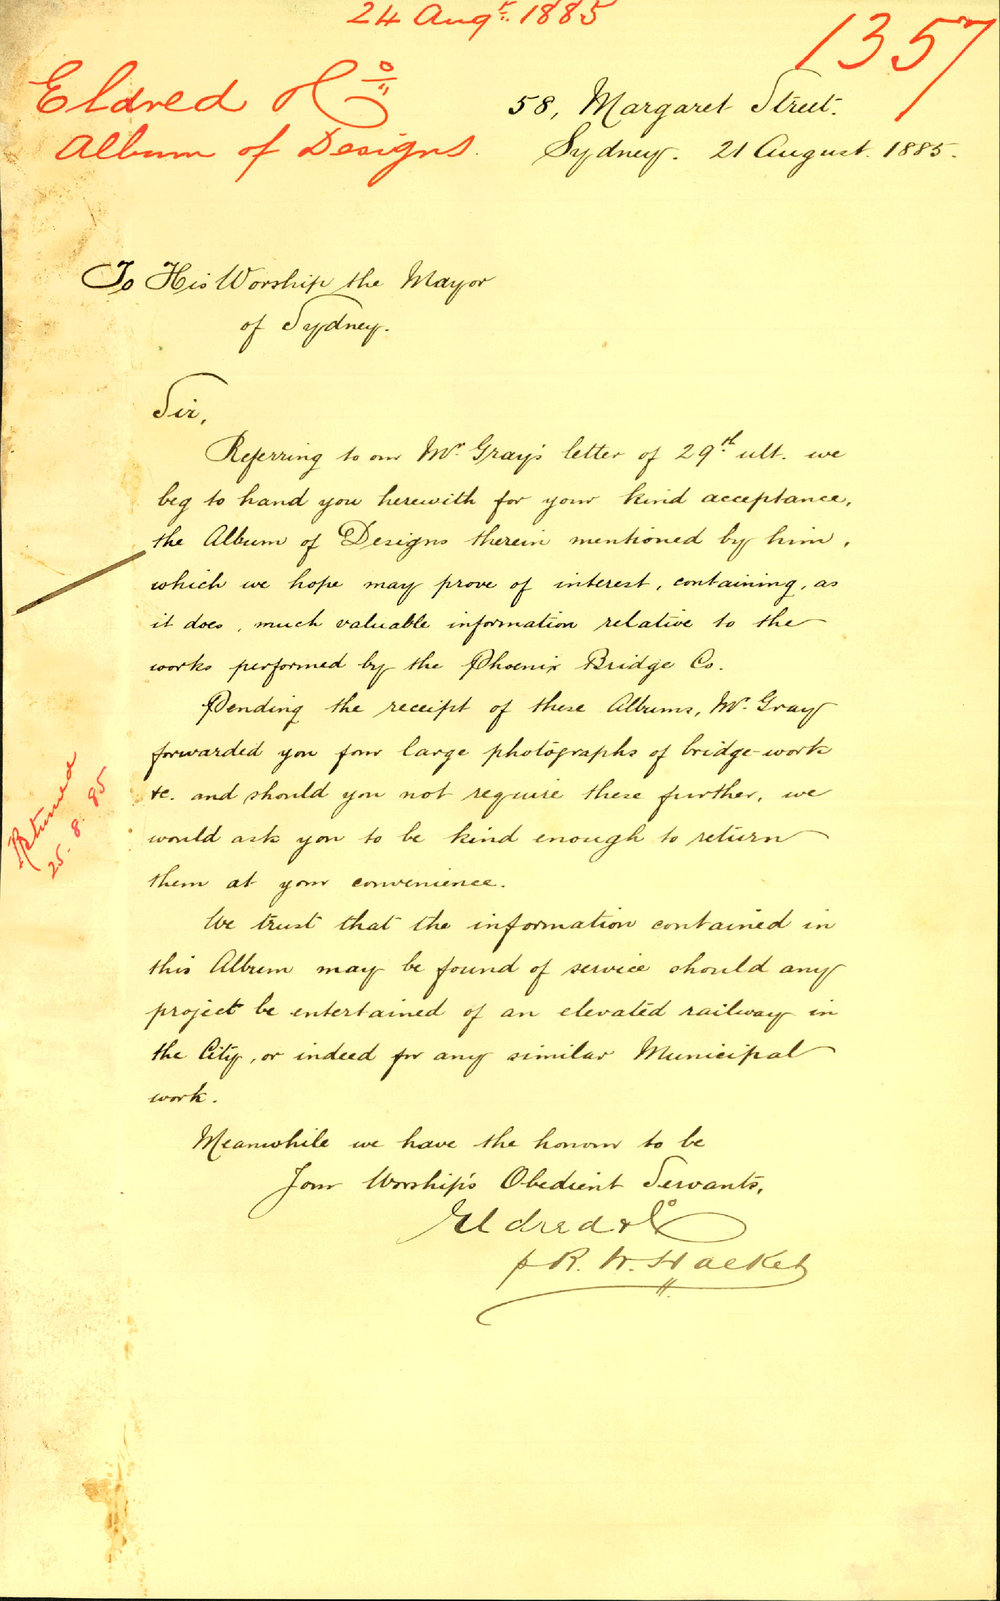 24 Augt. 1885
1357
Eldred & Co
Album of Designs.
58, Margaret Street.
Sydney. 21 August. 1885.
To His Worship the Mayor
of Sydney.
Sir,
Referring to our Mr. Gray's letter of 29th. ult. we
beg to hand you herewith for your kind acceptance,
the Album of Designs therein mentioned by him,
which we hope may prove of interest, containing, as
it does, much valuable information relative to the
works performed by the Phoenix Bridge Co.
Pending the receipt of these Albums, Mr. Gray
forwarded you four large photographs of bridge-work
&c. and should you not require these further, we
would ask you to be kind enough to return
them at your convenience.
Returned
25. 8. 85
We trust that the information contained in
this Album may be found of service should any
project be entertained of an elevated railway in
the City, or indeed for any similar Municipal
work.
Meanwhile we have the honour to be
Your Worship's Obedient Servants,
Eldred & Co
p R. W. Hacket